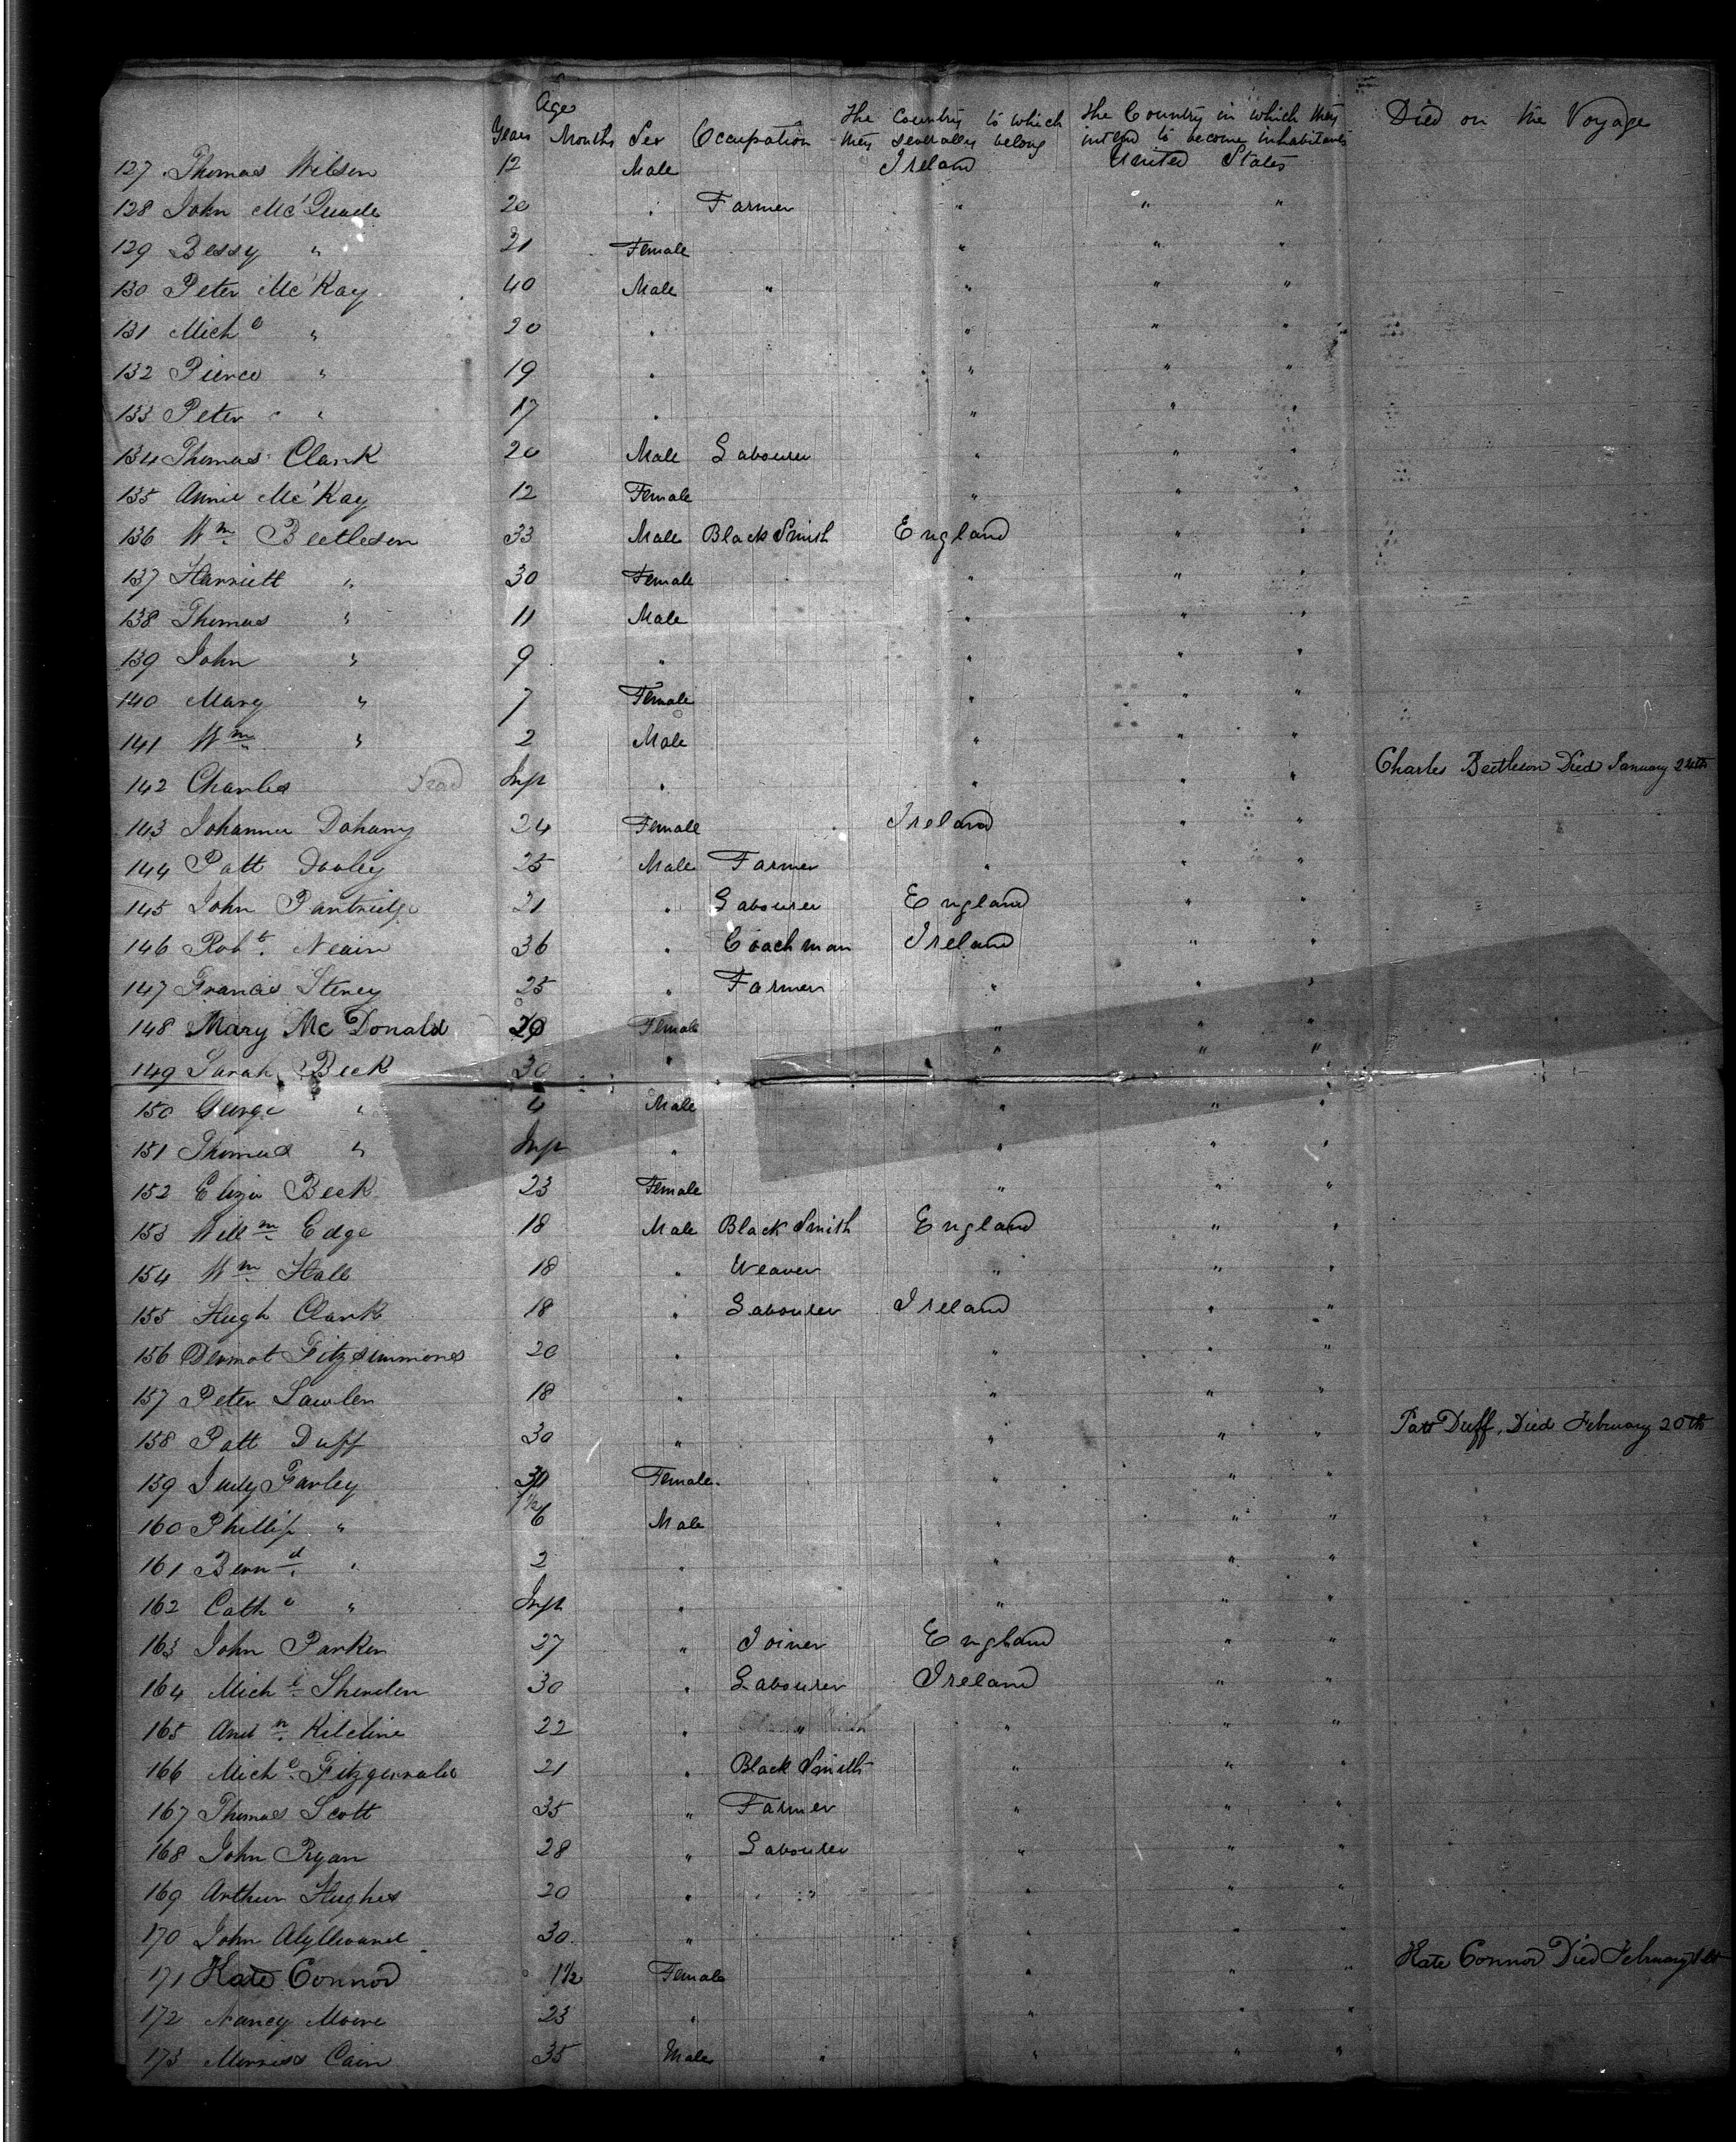 Age
Years Months Sex Occupation The Country to which they severally belong The Country in which they intend to become inhabitants Died on the Voyage
127 Thomas Wilson 12 Male Ireland United States
128 John Mc'Quade 20 " Farmer " " "
129 Bessy " 21 Female " " "
130 Peter Mc'Kay 40 Male " " " "
131 Mich l " 20 " " " "
132 Pierce " 19 " " " "
133 Peter " 17 " " " "
134 Thomas Clark 20 Male Labourer " " "
135 Annie Mc'Kay 12 Female " " "
136 Wm Beetleson 33 Male Black Smith England " "
137 Harriett " 30 Female " " "
138 Thomas " 11 Male " " "
139 John " 9 " " " "
140 Mary " 7 Female " " "
141 Wm " 2 Male " " "
142 Charles Dead Inft " " " " Charles Beetleson Died January 24th
143 Johanna Dohany 24 Female Ireland " "
144 Patt Dooley 25 Male Farmer " " "
145 John Partridge 21 " Labourer England " "
146 Robt. 36 " Coachman Ireland " "
147 Francis 25 " Farmer " " "
148 Mary Mc Donald Female " " "
149 Sarah Beck 30 " " " "
150 George " 4 Male " " "
151 Thomas " Inft " " " "
152 Eliza Beck 23 Female " " "
153 Willm Edge 18 Male Black Smith England " "
154 Wm Hall 18 " Weaver " " "
155 Hugh Clark 18 " Labourer Ireland " "
156 Dermot Fitzsimmones 20 " " " "
157 Peter Lawler 18 " " " "
158 Patt Duff 30 " " " " Patt Duff, Died February 20th
159 Judy Farley 30 Female " " "
160 Phillip " 6 Male " " "
161 Bernd " 2 " " " "
162 Cath e " Inft " " " "
163 John Parker 27 " Joiner England " "
164 Michl Sheridan 30 " Labourer Ireland " "
165 Andw Kilcline 22 " " " " "
166 Michl Fitzgerald 21 " Black Smith " " "
167 Thomas Scott 35 " Farmer " " "
168 John Ryan 28 " Labourer " " "
169 Arthur Hughes 20 " " " " "
170 John 30 " " " "
171 Kate Connor 1½ Female " " " Kate Connor Died February
172 Nancy Moore 23 " " " "
173 Cain 35 Male " " " "